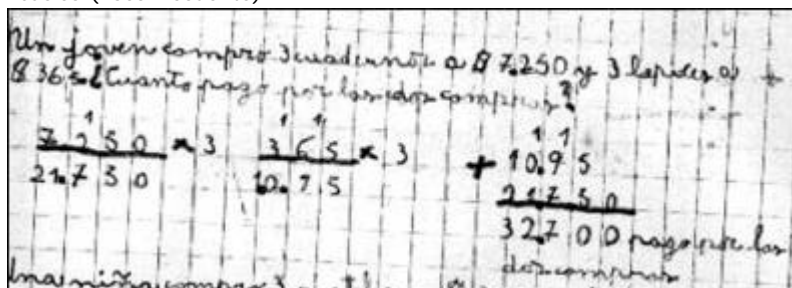 Un joven compro 3 cuadernos a $ 7.250 y 3 lapices a
$ 365 ¿Cuanto pago por las dos compras?
7250 x 3
21.750
365 x 3
10.95
+ 10.95
21750
32.700 pago por las
dos compras
Una niña compro 3